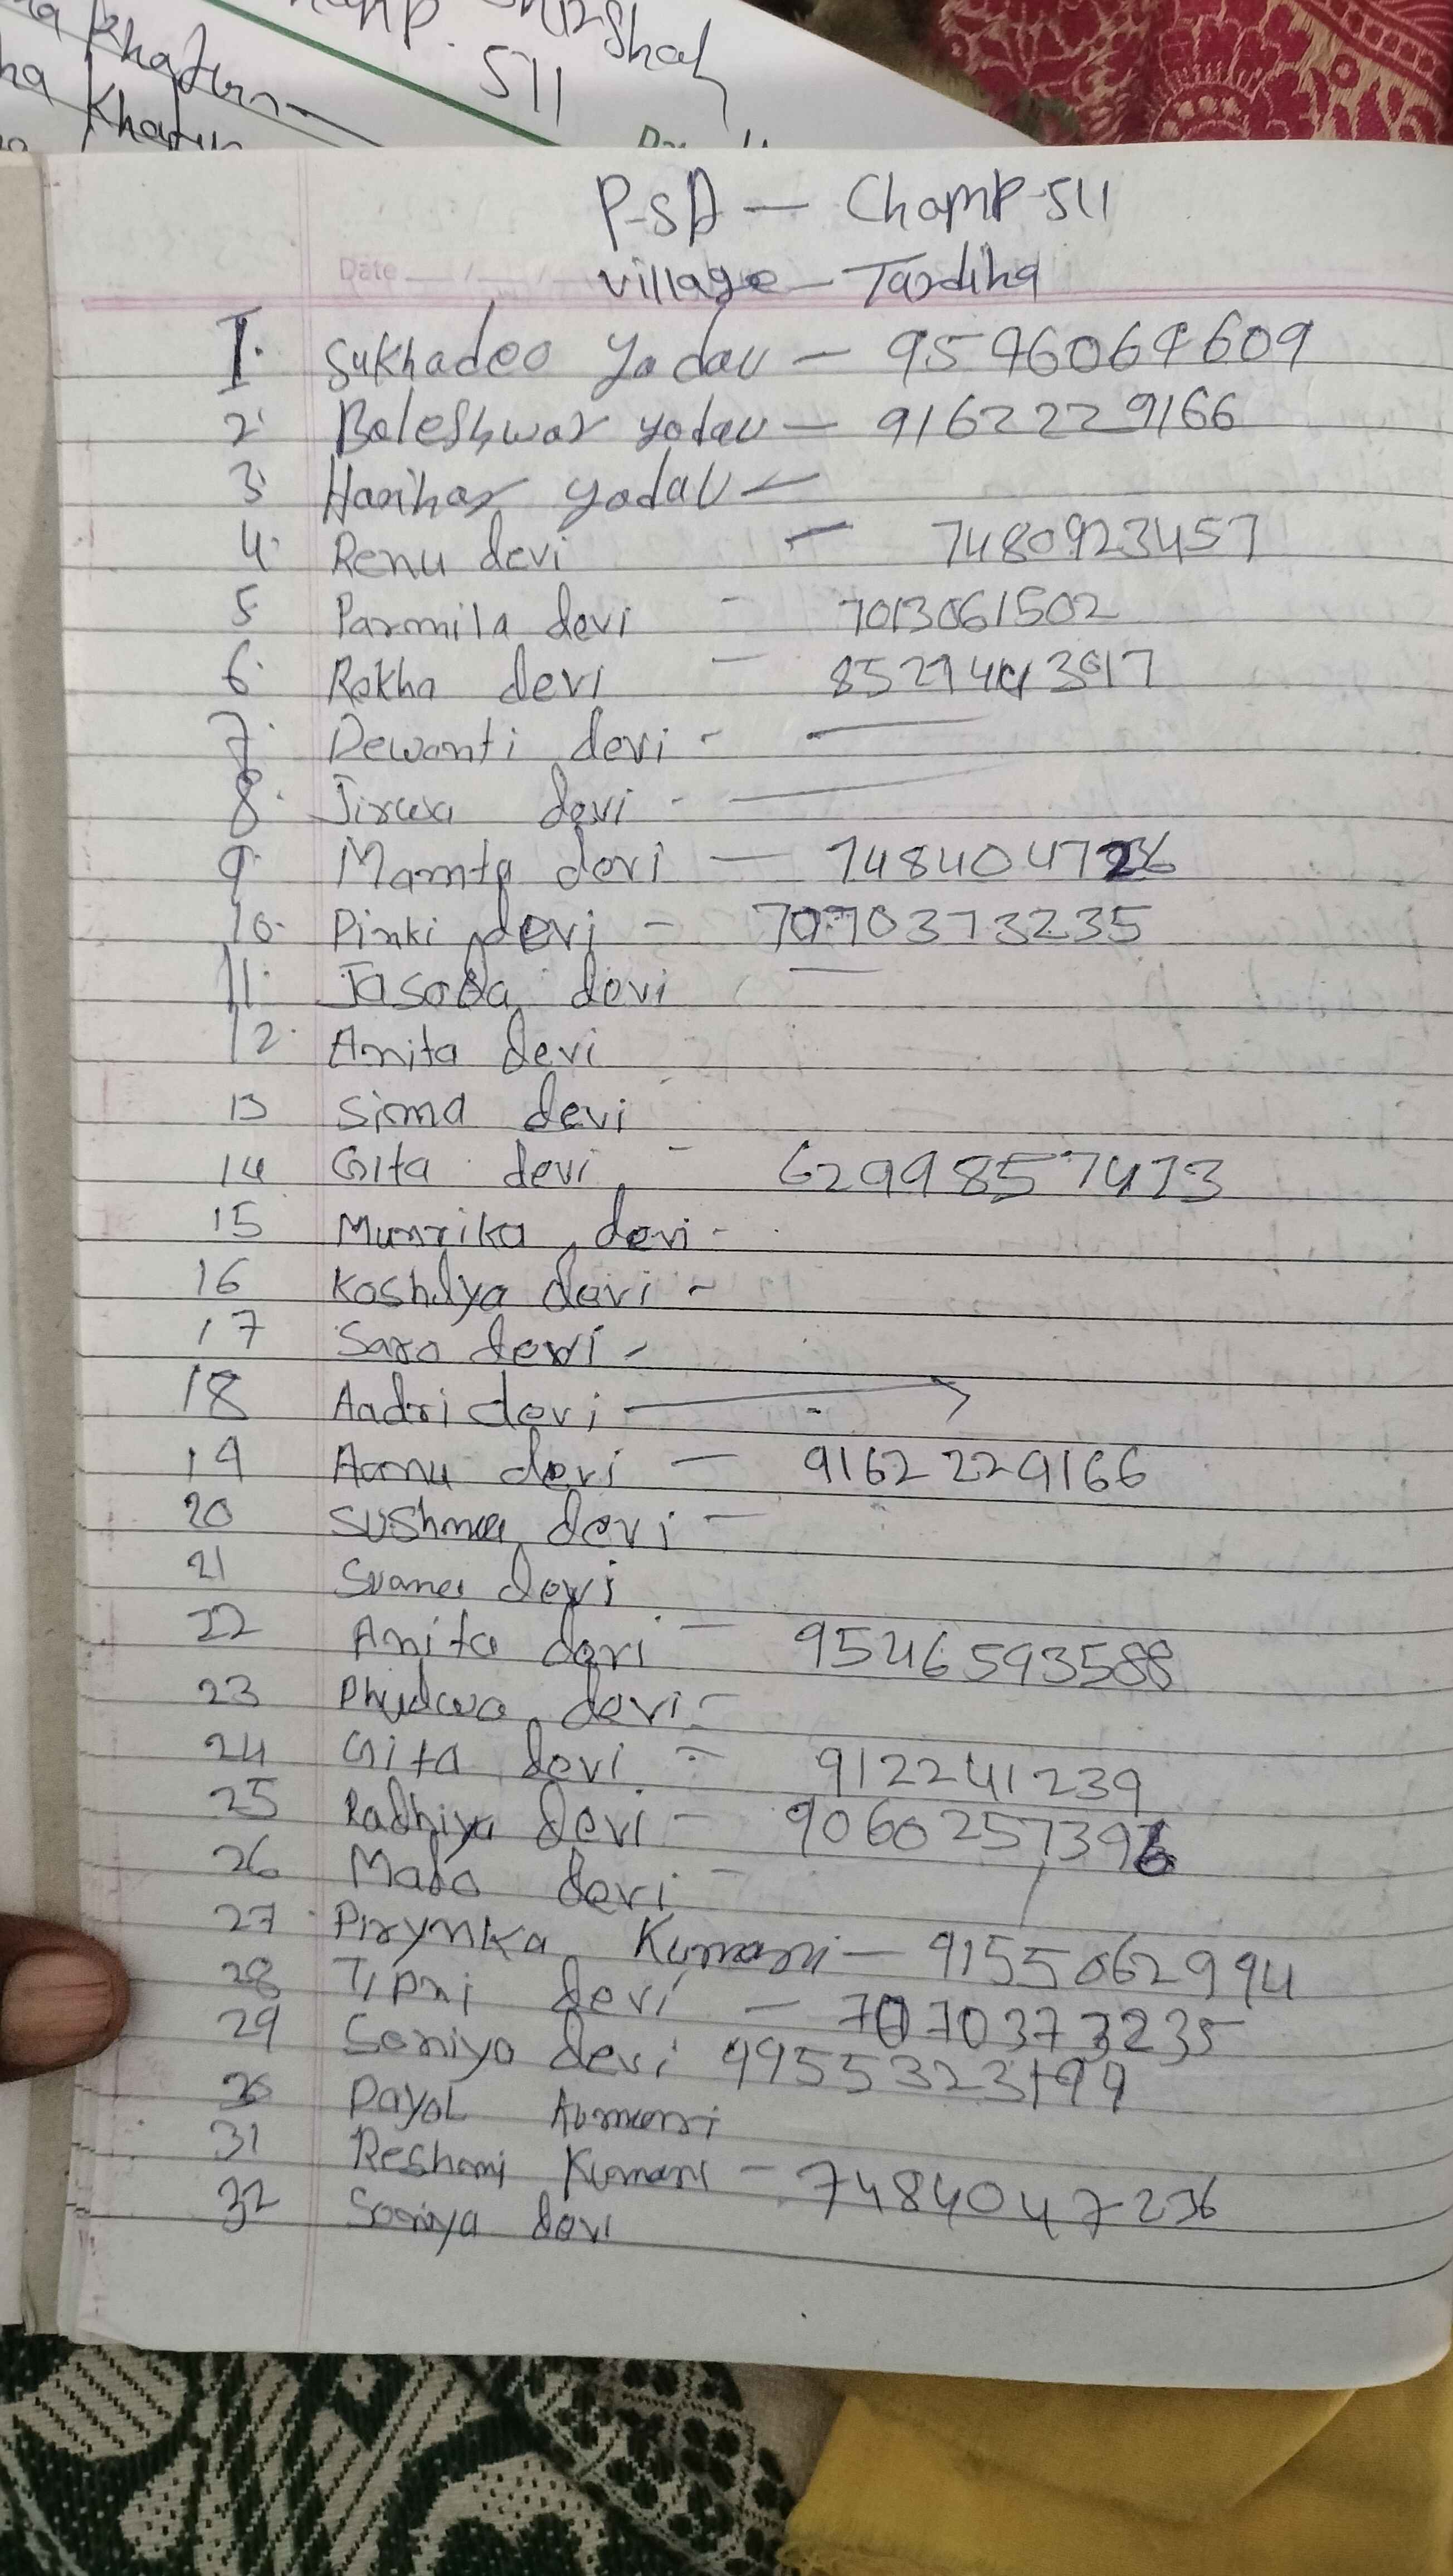 Shah
511
Khatun
Khatun
P-SA — Champ-511
Date
village — Tardiha
1. Sukhadeo Yadav — 9546064609
2. Baleshwar yadav — 9162229166
3. Harihar yadav —
4. Renu devi — 7480923457
5 Parmila devi - 7013061502
6. Rekha devi —
7. Dewanti devi -
8. Jirwa devi -
9. Mamta devi —
10. Pinki devi - 7070373235
11. Jasoda devi
12. Anita devi
13 Sima devi
14 Gita devi - 6299857473
15 Munrika devi -
16 Koshilya devi -
17 Saro devi -
18 Aadri devi
19 Aanu devi — 9162229166
20 Sushma devi —
21 devi
22 Anita devi — 9546593588
23 devi -
24 Gita devi - 912241239
25 Radhiya devi -
26 Maro devi -
27 Pirynka Kumari — 9155062994
28 Tipni devi — 7070373235
29 Soniya devi 9955323199
30 Payal Kumari
31 Reshmi Kumari - 7484047236
32 Soniya devi